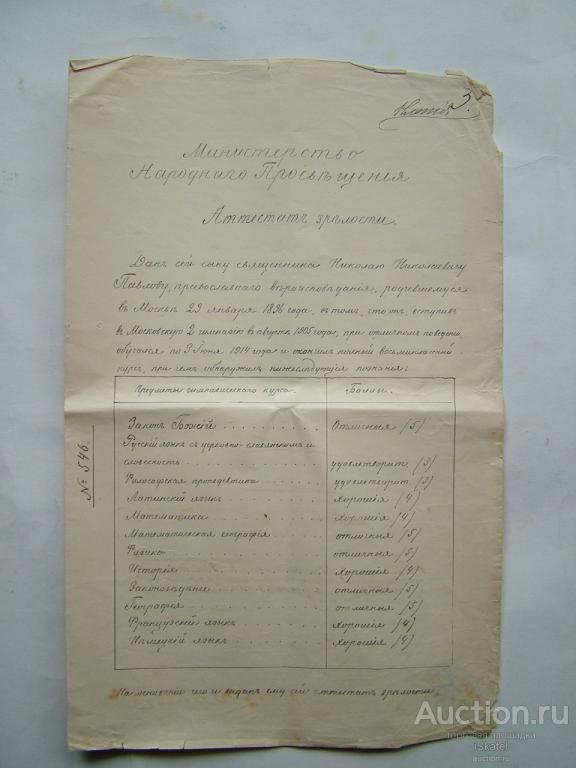 Копія
Министерство
Народнаго Просвѣщенія
Аттестатъ зрѣлости.
Данъ сей сыну священника Николаю Николаевичу
Павлову, православнаго вѣроисповѣданія, родившемуся
въ Москвѣ 29 января 1896 года, въ томъ, что онъ, вступивъ
въ Московскую 2 гимназію въ августѣ 1905 года, при отличномъ поведеніи
обучался по 3 Іюня 1914 года и окончилъ полный восьмиклассный
курсъ, при чемъ обнаружилъ нижеслѣдующія познанія:
Предметы гимназическаго курса. Баллы.
Законъ Божій Отличныя (5)
Русскій языкъ съ церковно-славянскимъ и
словесность удовлетворит. (3)
Философская пропедевтика удовлетворит (3)
Латинскій языкъ хорошія (4)
Математика хорошія (4)
Математическая географія отличныя (5)
Физика отличныя (5)
Исторія хорошія (4)
Законовѣдѣніе отличныя (5)
Географія отличныя (5)
Французскій языкъ хорошія (4)
Нѣмецкій языкъ хорошія (4)
На основаніи чего и выданъ ему сей аттестатъ зрѣлости,
№ 546.
Auction.ru
торговая площадка
iSkatel
auction.ru